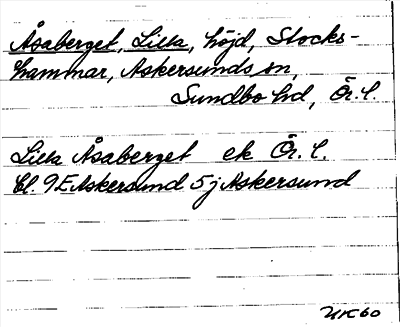 Åsaberget, Lilla, höjd, Stocks-
hammar, Askersunds sn,
Sundbo hd, Ör. l.
Lilla Åsaberget ek Ör. l.
bl. 9E Askersund 5j Askersund
UK60